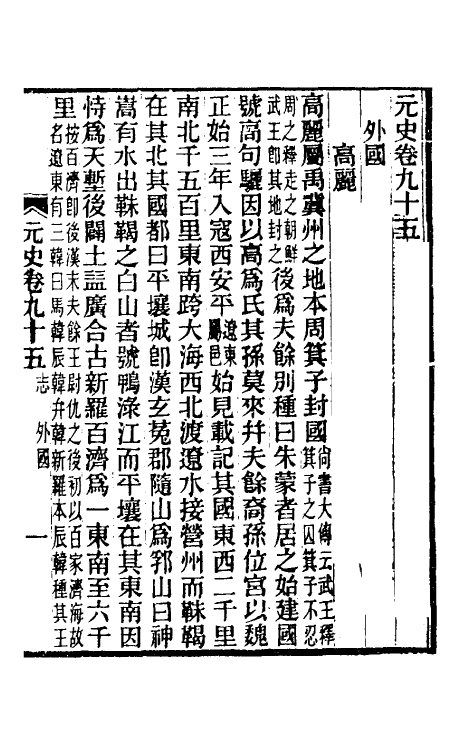 元史卷九十五
外國
高麗
高麗屬禹冀州之地本周箕子封國尚書大傳云武王釋箕子之囚箕子不忍
周之釋走之朝鮮武王卽其地封之後爲夫餘別種曰朱蒙者居之始建國
號高句驪因以高爲氏其孫莫來幷夫餘裔孫位宮以魏
正始三年入寇西安平遼東屬邑始見載記其國東西二千里
南北千五百里東南跨大海西北渡遼水接營州而靺鞨
在其北其國都曰平壤城卽漢玄菟郡隨山爲郛山曰神
嵩有水出靺鞨之白山者號鴨淥江而平壤在其東南因
恃爲天塹後闢土益廣合古新羅百濟爲一東南至六千
里按百濟卽後漢末夫餘王尉仇之後初以百家濟海故名遼東有三韓曰馬韓辰韓弁韓新羅本辰韓種其王
元史卷九十五 志 外國 一